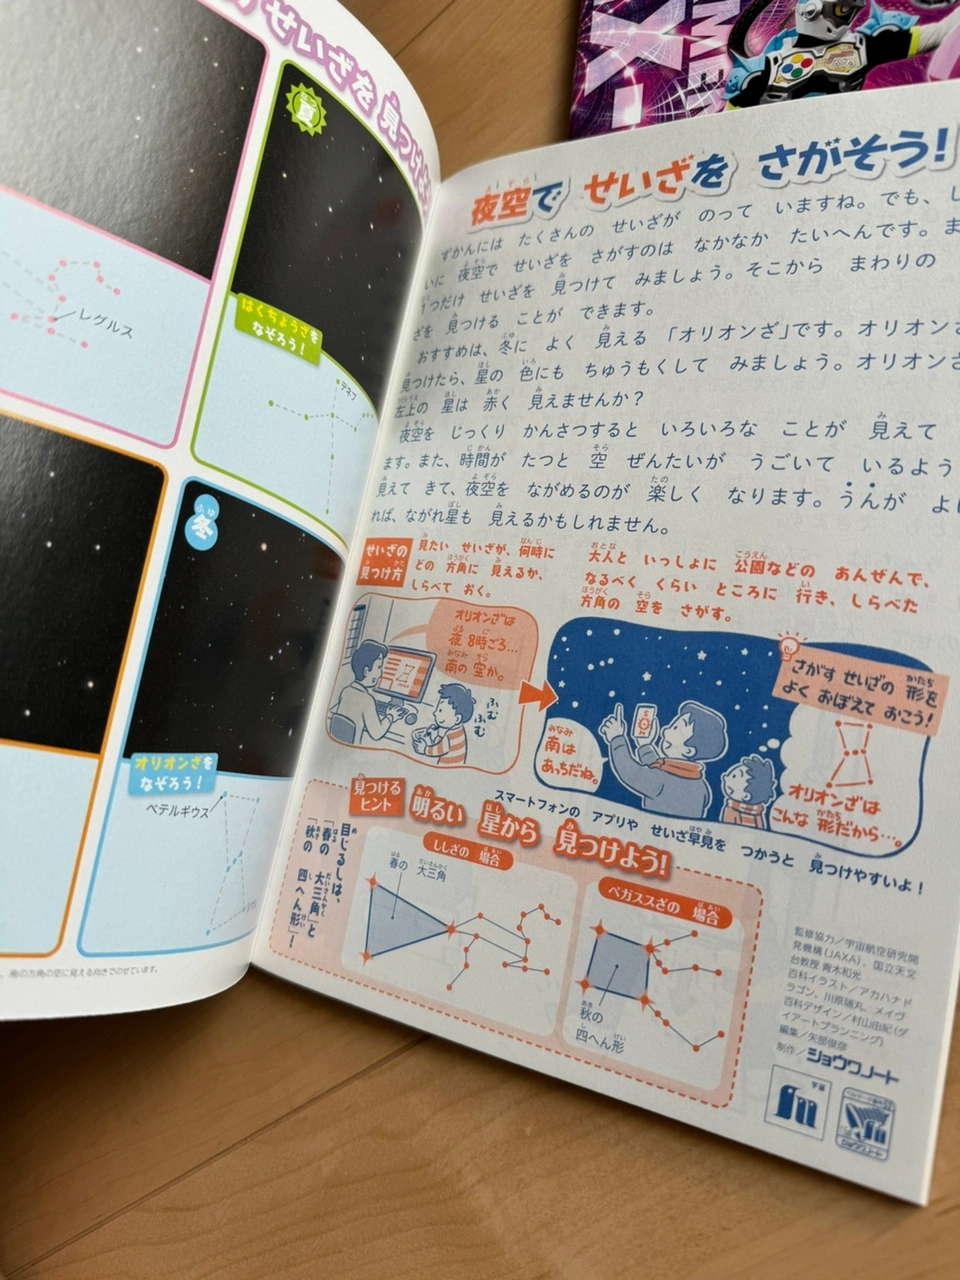 せいざを 見つけよ
夏
はくちょうざを
なぞろう!
デネブ
レグルス
冬
オリオンざを
なぞろう!
ベテルギウス
南の方角の空に見える向きでのせています。
夜空で せいざを さがそう!
ずかんには たくさんの せいざが のって いますね。でも、し
いに 夜空で せいざを さがすのは なかなか たいへんです。ま
1つだけ せいざを 見つけて みましょう。そこから まわりの
ざを 見つける ことが できます。
おすすめは、冬に よく 見える 「オリオンざ」です。オリオンざ
見つけたら、星の 色にも ちゅうもくして みましょう。オリオンざ
左上の 星は 赤く 見えませんか?
夜空を じっくり かんさつすると いろいろな ことが 見えて
ます。また、時間が たつと 空 ぜんたいが うごいて いるよう
見えて きて、夜空を ながめるのが 楽しく なります。うんが よけ
れば、ながれ星も 見えるかもしれません。
せいざの
見つけ方
見たい せいざが、何時に
どの 方角に 見えるか、
しらべて おく。
大人と いっしょに 公園などの あんぜんで、
なるべく くらい ところに 行き、しらべた
方角の 空を さがす。
オリオンざは
夜 8時ごろ…
南の 空か。
ふむ
ふむ
南は
あっちだね。
さがす せいざの 形を
よく おぼえて おこう!
オリオンざは
こんな 形だから…。
スマートフォンの アプリや せいざ早見を つかうと 見つけやすいよ!
見つける
ヒント
明るい 星から 見つけよう!
目じるしは、
「春の 大三角」と
「秋の 四へん形」!
ししざの 場合
春の 大三角
ペガススざの 場合
秋の
四へん形
監修協力/宇宙航空研究開
発機構(JAXA)、国立天文
台教授 青木和光
百科イラスト/アカハナド
ラゴン、川原瑞丸、メイヴ
百科デザイン/村山由紀(ダ
イアートプランニング)
編集/矢部俊彦
制作/ショウワノート